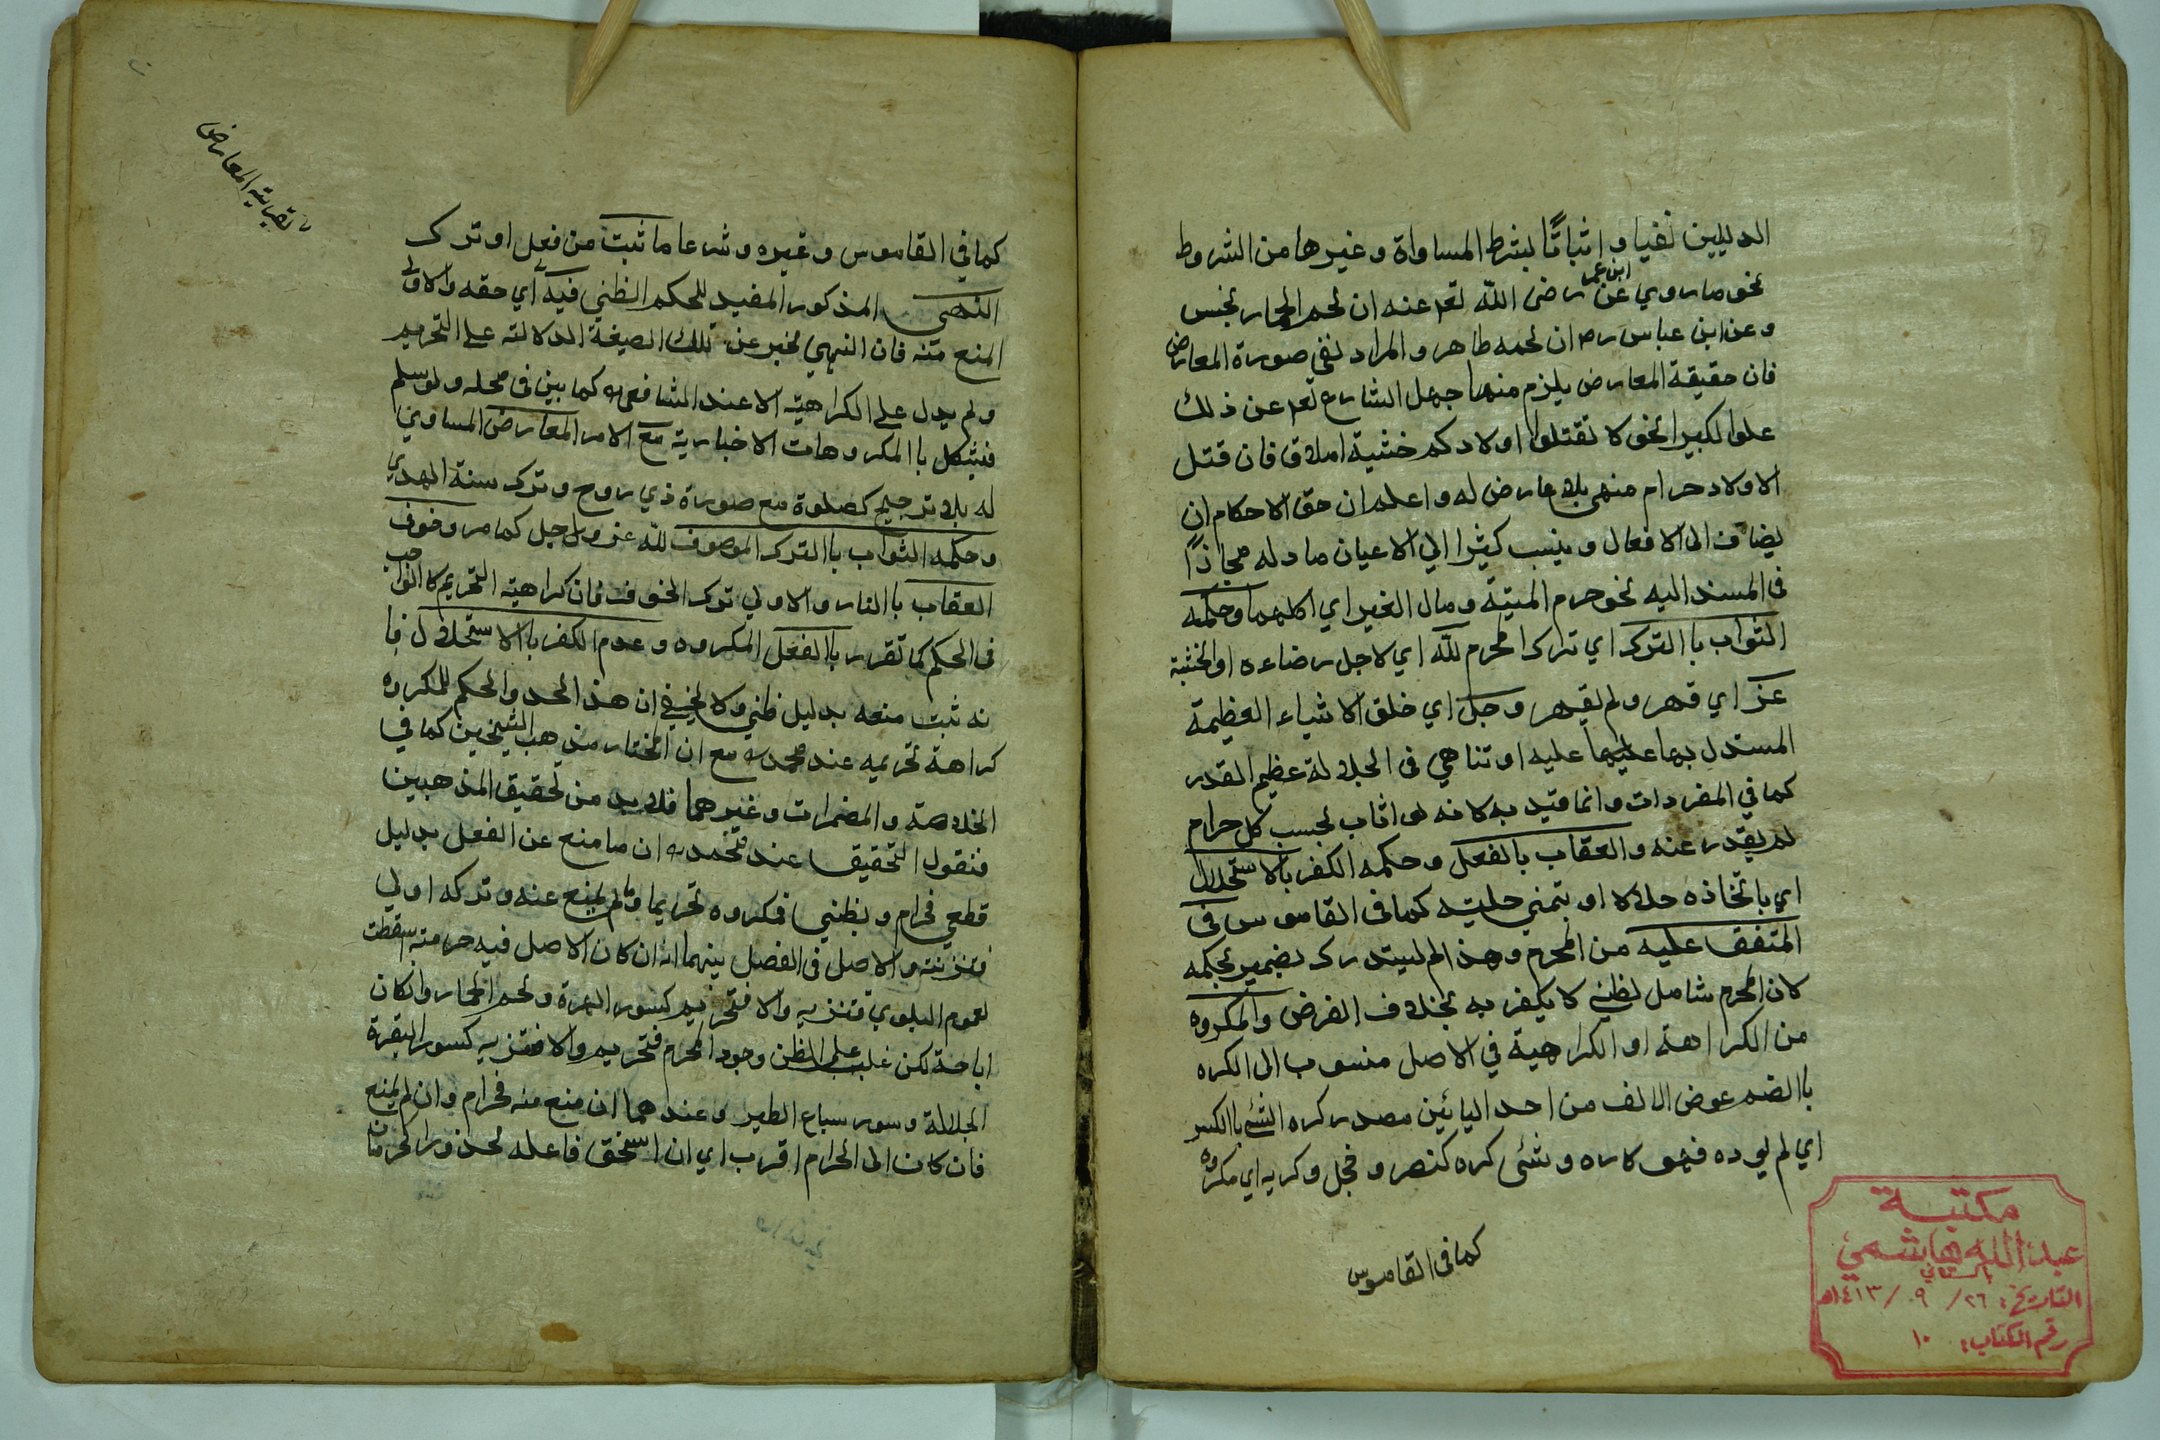 الدليلين نفيا و اثباتًا بشرط المساواة و غيرها من الشروط
نحو ما روي عن ابن عمر رضى الله تعم عنه ان لحم الحمار نجس
و عن ابن عباس رہ ان لحمه طاهر و المراد نفى صورة المعارض
فان حقيقة المعارض يلزم منها جهل الشارع تعم عن ذلك
علوا كبيرا نحو لا تقتلوا اولادكم خشية املاق فان قتل
الاولاد حرام منهى بلا عارض له و اعلم ان حق الاحكام ان
يضاف الى الافعال و ينسب كثيرا الي الاعيان مادله مجاذًا
فى المسند اليه نحو حرم الميتة و مال الغير اي اكلهما و حكمه
الثواب با الترك اي ترك المحرم لله اي لاجل رضاءه او لخشية
عز اي قهر و لم يقهر و جل اي خلق الاشياء العظيمة
المستدل بها عليه او تناهي فى الجلالة عظيم القدر
كما في المفردات و انما قيد به لانه لو اثاب بحسب كل حرام
لم يقدر عنه و العقاب بالفعل و حكمه الكفر بالاستحلال
اي باتخاذه حلالا او بتمني حليته كما فى القاموس فى
المتفق عليه من المحرم و هذا لم ليتدرك بضمير بحكمه
لان المحرم شامل لظني لا يكفر به بخلاف الفرض و المكروه
من الكراهة او الكراهية في الاصل منسوب الى الكره
با الضم عوض الالف من احد اليائين مصدر كره الشئ با الكسر
اي لم يوده فهو كاره و شئى كره كنصر و فجل و كريه اي مكروه
كما فى القاموس
مكتبة
عبد الله هاشمي
باكستاني
التاريخ: ٢٦/ ٠٩ /١٤١٣هـ
رقم الكتاب: ١٠
تضايته المعارض
كما في القاموس و غيره و شرعا ما ثبت من فعل او ترك
النهى المذكور المفيد للحكم الظني فيه اي حقه و الاولى
المنع منه فان النهي مخبر عن تلك الصيغة الدلالته على التحريم
و لم يدل على الكراهية الا عند الشافعى رہ كما بين فى محله و لو سلم
فيشكل با المكروهات الاخبارية مع الامر المعارض المساوي
له بلا ترجيح كصلوة مع صورة ذي روح و ترك سنة الهدي
و حكمه الثواب با الترك الموصوف لله عز و جل كما مر و خوف
العقاب با النار و الاولي ترك الخوف فان كراهية التحريم كا الواجب
فى الحكم كما تقرر با الفعل المكروه و عدم الكفر با الاستحلال فا
نه ثبت منعه بدليل ظني و لا يخفي ان هذا الحد و الحكم للمكروه
كراهة تحريميه عند محمد رہ مع ان المختار مذهب الشيخين كما في
الخلاصة و المضمرات و غيرهما فلا بد من تحقيق المذهبين
فنقول التحقيق عند محمد رہ ان ما منع عن الفعل بدليل
قطعي فحرام و بظني فمكروه تحريما و ما لم يمنع عنه و تركه اولي
فتنزيه و الاصل فى الفصل بينهما انه ان كان الاصل فيه حرمته سقطت
لعموم البلوي فتنزيه و الا فتحريم كسور الهرة و لحم الحمار و ان كان
اباحة لكن غلب على الظن وجود المحرم فتحريم و الا فتنزيه كسور البقرة
الجلالة و سور سباع الطير و عندهما ان منع منه فحرام و ان لم يمنع
فان كان الى الحرام اقرب اي ان استحق فاعله محذورا لحرمان